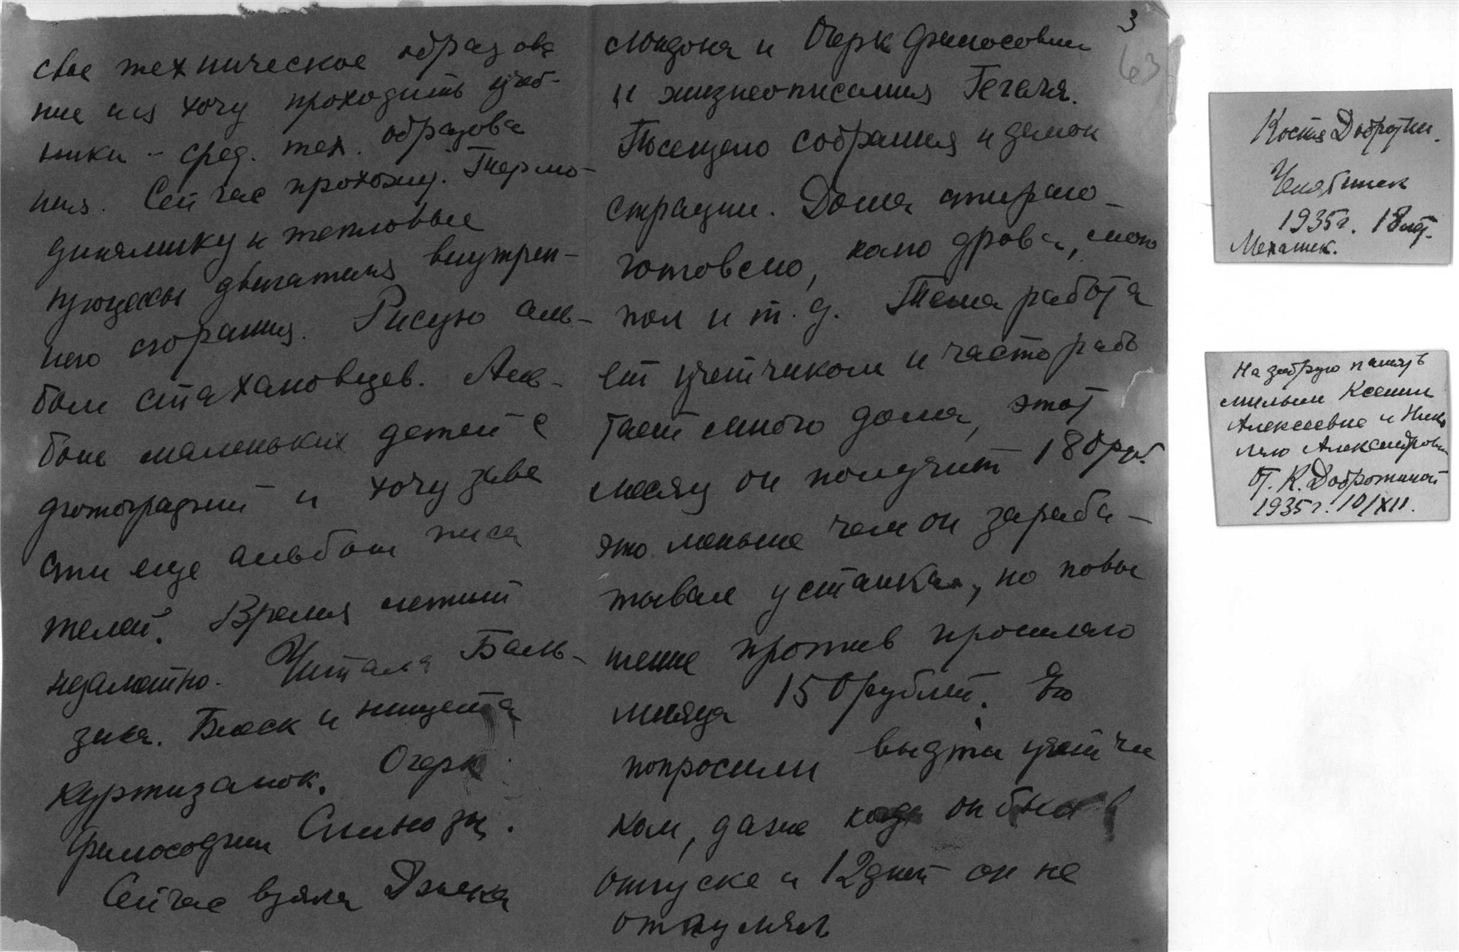 свое техническое образова
ние и я хочу проходить учеб-
ники - сред. тех. образова
ния. Сейчас прохожу. Термо-
динамику и тепловые
процессы двигателя внутрен-
него сгорания. Рисую аль-
бом стахановцев. Аль-
бом маленьких детей с
фотографий и хочу заве
сти еще альбом писа
телей. Время летит
незаметно. Читала Баль-
зака. Блеск и нищета
куртизанок. Очерк
философии Спинозы.
Сейчас взяла Джека
3
63
Лондона и Очерк философии
и жизнеописания Гегеля.
Посещаю собрания и демон
страции. Дома стираю-
готовлю, колю дрова, мою
пол и т.д. Тема работа
ет учетчиком и часто рабо
тает много дома, этот
месяц он получит 180 руб.
это меньше чем он зараба-
тывал у станка, но повы
шение против прошлого
месяца 150 рублей. Его
попросили выдти учетчи
ком, даже когда он был в
отпуске и 12 дней он не
отгулял
Костя Добротин.
Челябинск
1935г. 18 лет.
Механик.
На добрую память
милым Ксении
Алексеевне и Нико
лаю Александрови
От К. Добротиной
1935г. 10/XII.